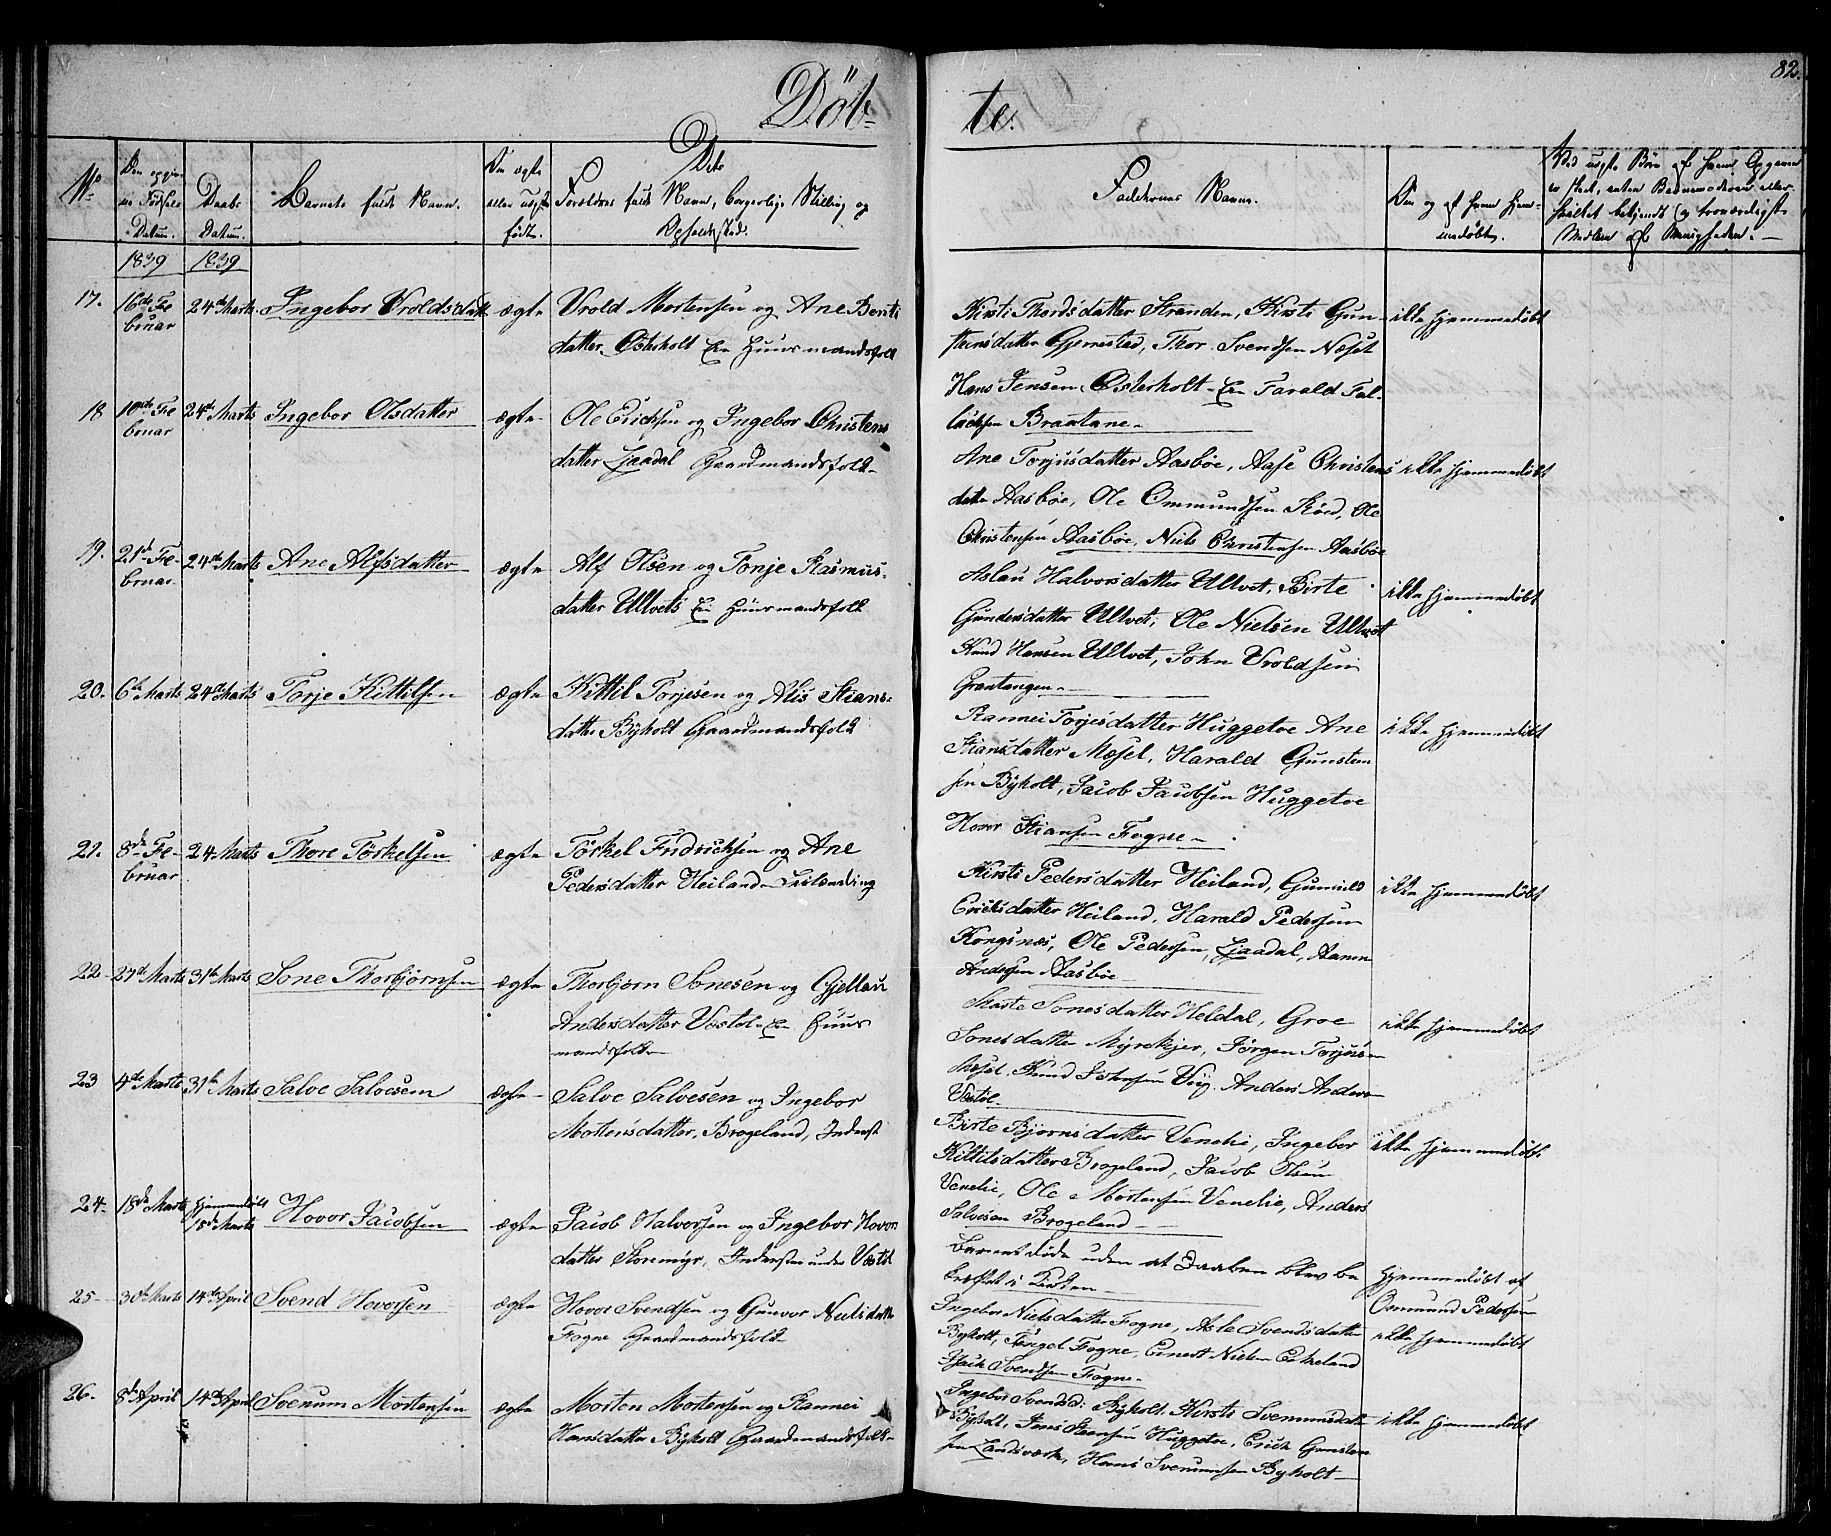 82.
Döb=
te.
No
Datum.
Daabs
Datum.
Barnets fulde Navn.
født.
Forældres fulde Navn, borgerlige Stilling og
Faddernes Navne.
1839 1839
17. 16de Fe
bruar
24de Marts. Ingebor Vroldsdatt ægte Vrold Mortensen og Ane Bents
datter Østerholt Huusmandsfolk
Kirsti Thordsdatter Stranden, Kirsti Gun-
steinsdatter Gjerrestad, Thor Svendsen Næset
Hans Jensen Østerholt Tarald Tal-
laksen Braatane
ikke hjemmedøbt
18 10de Fe
bruar
24de Marts Ingebor Olsdatter ægte Ole Erichsen og Ingebor Christens
datter Ljaadal Gaardmandsfolk
Ane Torjusdatter Aasbøe, Aase Christens
datter Aasbøe, Ole Ommundsen Røed, Ole
Christensen Aasbøe, Niels Christensen Aasbøe
ikke hjemmedøbt
19. 21de Fe-
bruar
24de Marts Ane Alfsdatter ægte Alf Olsen og Tonje Rasmus-
datter Ullvets Huusmandsfolk
Aslau Halvorsdatter Ullvet, Birte
Gundersdatter Ullvet, Ole Nielsen Ullvet
Knud Hansen Ullvet, John Vroldsen
Grantangen
ikke hjemmedøbt
20. 6te Marts 24de Marts Torje Kittilsen ægte Kittil Torjesen og Alis Stians-
datter Byholt Gaardmandsfolk
Rannei Torjesdatter Huggetve Ane
Stiansdatter Mæsel, Harald Gunsten
sen Byholt, Jacob Jacobsen Huggetve
Hover Stiansen Fogne
ikke hjemmedøbt
21. 8de Fe-
bruar
24 Marts Thore Törkelsen ægte Törkel Fridrichsen og Ane
Pedersdatter Heiland
Kirsti Pedersdatter Heiland, Gunild
Ericksdatter Heiland, Harald Pedersen
Kongsnæs, Ole Pedersen, Ljaadal,
Andersen Aasbøe
ikke hjemmedøbt
22 27de Marts 31te Marts Sone Thorbjørnsen ægte Thorbjørn Sonesen og Gjellau
Andersdatter Væstøl Huus
mandsfolk
Marte Sonesdatter Heldal, Groe
Sonesdatter Myrekjer, Jörgen Torjus-
Mæsel, Knud Anders Anders
Væstøl
ikke hjemmedøbt
23 4de Marts 31te Marts Salve Salvesen ægte Salve Salvesen og Ingebor
Mortensdatter, Brogeland, Inderst
Birte Bjørnsdatter Venelie, Ingebor
Kittilsdatter Brogeland, Jacob Olsen
Venelie, Ole Mortensen Venelie, Anders
Salvesen Brogeland
ikke hjemmedøbt
24. 18de Marts hjemmedøbt
18de Marts
Hovor Jacobsen ægte Jacob Halvorsen og Ingebor Hovors
datter Storemyr, Inderster under Væstøl
Barnet døde uden at Daaben blev be
kræftet i Kirken
Hjemmedøbt af
Ommund Pedersen
25 30te Marts 14de April Svend Hovorsen ægte Hovor Svendsen og Gunvor Nielsdatter
Fogne Gaardmandsfolk
Ingebor Nielsdatter Fogne, Asle Svendsdatter
Byholt, Tengel Fogne, Nielsen Eikeland
Isach Svendsen Fogne
ikke hjemmedøbt
26. 8de April 14de April Svenum Mortensen ægte Morten Mortensen og Rannei
Hansdatter Byholt Gaardmandsfolk
Ingebor Svendsd: Byholt, Kirsti Svennumsdatt
Byholt, Jens Steensen Huggetve, Erick Gunsten
sen Landsværk, Hans Svenumsen Byholt
ikke hjemmedøbt